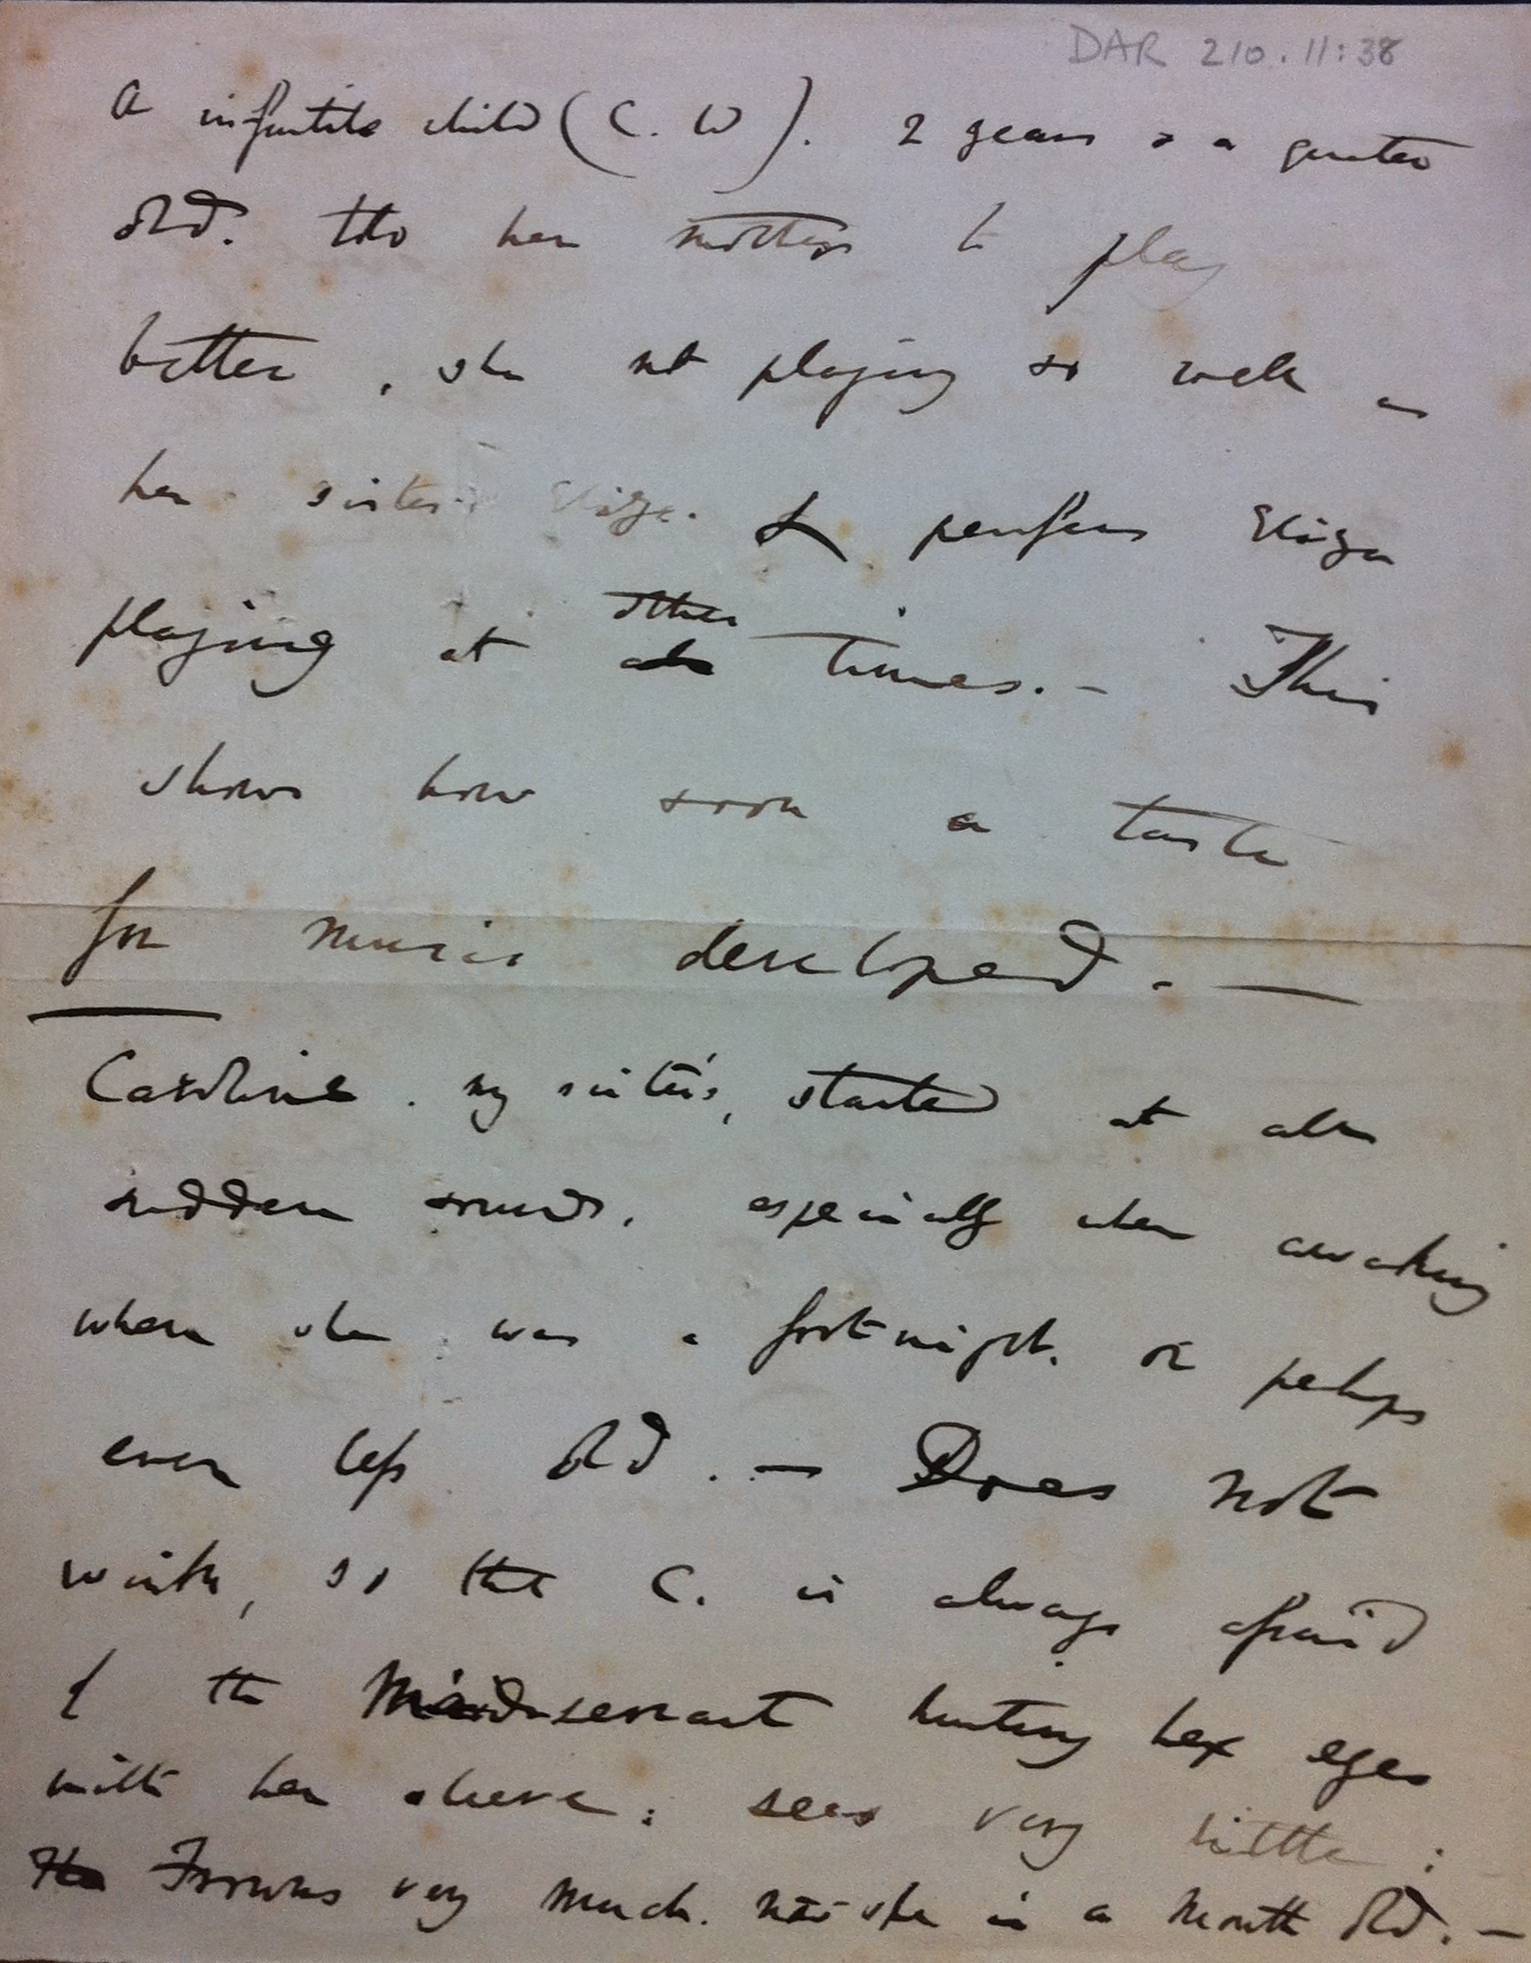 DAR 210.11:38
A infantile child (C. W). 2 years & a quarter
old. told her mother to play
better, she not playing so well as
her sister Eliza. & prefers Eliza
playing at other times. — This
shows how soon a taste
for music developed. —
Caroline. my sister's, started at all
sudden sounds, especially when awaking
when she was a fortnight. or perhaps
even less old. — Does not
wink, so that C. is always afraid
of the Maid-servant hurting her eyes
with her sleeve: sees very little:
Frowns very much. now she is a month old. —